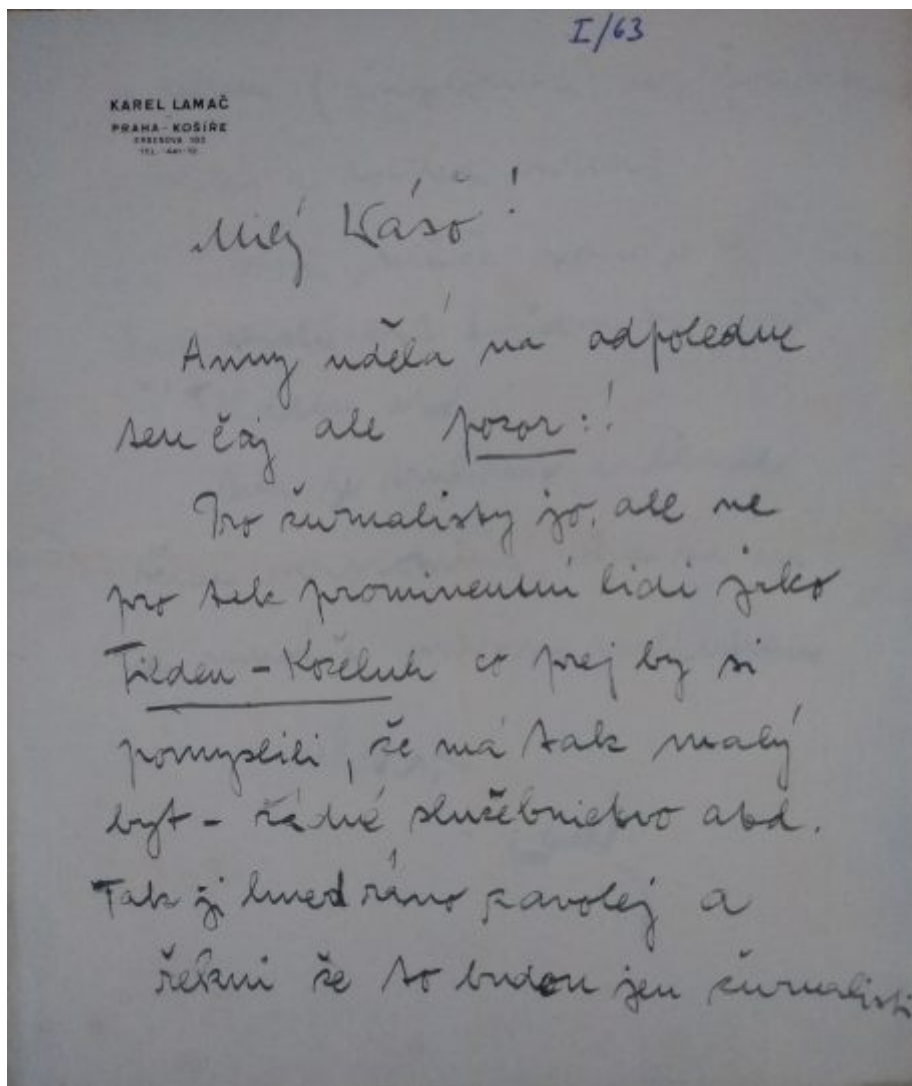 I/63
KAREL LAMAČ
PRAHA - KOŠÍŘE
Milý Vášo!
Anny udělá na odpoledne
ten čaj ale pozor:!
Pro žurnalisty jo, ale ne
pro tak prominentní lidi jako
Tilden - Koželuh co prej by si
pomyslili, že má tak malý
byt - žádné služebnictvo atd.
Tak ji hned ráno zavolej a
řekni že to budou jen žurnalisti